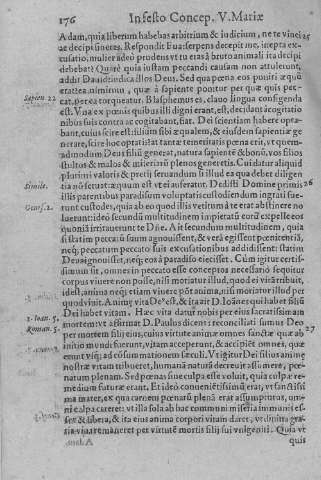 176 Infesto Concep. V. Mariæ
Adam, quia liberum habebas arbitrium & iudicium, ne te vinci 25
ac decipi sineres. Respondit Eua serpens decepit me, inepta ex-
cusatio, mulier adeò prudens vt tu eras à bruto animali ita decipi
debebat? Quare quia iustam peccandi causam non attulerunt,
addit Dauid iudica illos Deus. Sed qua pœna eos puniri æquū
erat? ea nimirum, qua à sapiente ponitur per quæ quis pec-
Sapien. 22 cat, per ea torqueatur. Blasphemus es, clauo lingua configenda
est. Vna ex pœnis quibus illi digni erant, est, decidant à cogitatio
nibus suis contra ac cogitabant, fiat. Dei scientiam habere opta-
bant, cuius scire est illium sibi æqualem, & eiusdem sapientiæ ge-
nerare, scire hoc optatis at tantæ temeritatis pœna erit, vt quem-
admodum Deus filiū generat, natura sapientē & bonū, vos filios
stultos & malos & miseriarū plenos generetis. Cui datur aliquid
plurimi valoris & pretij seruandum si illud ea qua debet diligen
Simile. tia nō seruat: æquum est vt ei auferatur. Dedisti Domine primis 26
illis parentibus paradisum voluptatis custodiendum ingrati fue-
Genes. 2. runt custodes, quia ab eo quod illis vetitum à te erat abstinere no
luerunt: ideò secundū multitudinem impietatū eorū expelle eos
quoniā irritauerunt te Dñe. At secundum multitudinem, quia
si statim peccatū suum agnouissent, & verā egissent pœnitentiā,
neq; peccatum peccato suis excusationibus addidissent: statim
Deus agnouisset, neq; eos à paradiso eiecisset. Cùm igitur certis-
simum sit, omnes in peccato esse conceptos necessariò sequitur
corpus viuere non posse, nisi moriatur illud, quod ei vitā tribuit,
id est, anima neq; etiam viuere pōt anima, nisi moriatur illud per
quod viuit. Animę vita Deꝰ est, & ita ait D. Ioānes qui habet filiū
1. Ioan. 5. Dei habet vitam. Hæc vita datur nobis per eius sacratissimam
Roman. 5. mortem: vt affirmat D. Paulus dicens: reconciliati sumus Deo
per mortem filij eius, cuius virtute animæ omnes sanctæ quæ ab 27
initio mundi fuerunt, vitam acceperunt, & accipiēt omnes, quæ
erunt vsq; ad cōsummationem sæculi. Vt igitur Dei filius animę
nostræ vitam tribueret, humanā naturā decreuit assumere, pœ-
natum plenam. Sed pœnas sine culpa esse voluit, quia culpæ re-
medium futuræ erant. Et ideò conueniētissimū, erat, vt sanctissi
ma mater, ex qua carnem pœnarū plenā erat assumpturus, om-
ni culpa careret:
quis